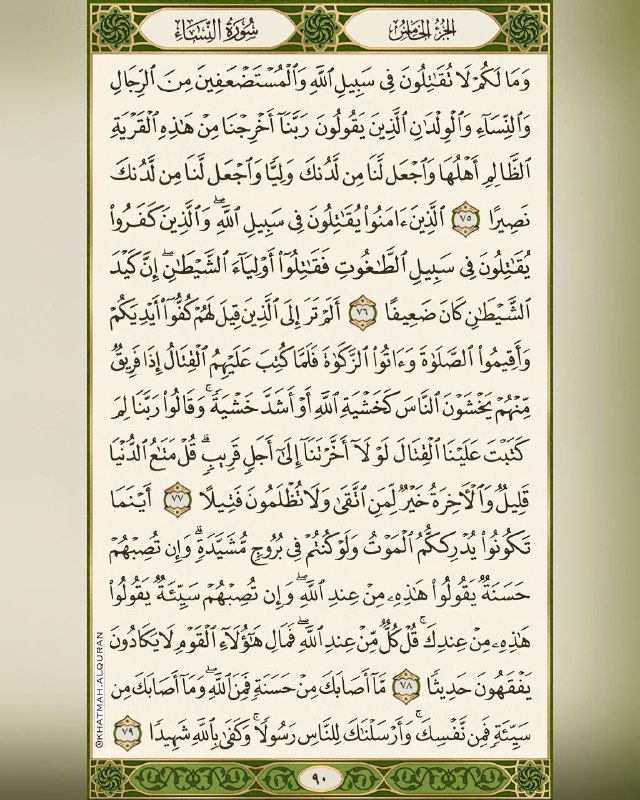 الجزء الخامس
سورة النساء
وَمَا لَكُمۡ لَا تُقَٰتِلُونَ فِي سَبِيلِ ٱللَّهِ وَٱلۡمُسۡتَضۡعَفِينَ مِنَ ٱلرِّجَالِ
وَٱلنِّسَآءِ وَٱلۡوِلۡدَٰنِ ٱلَّذِينَ يَقُولُونَ رَبَّنَآ أَخۡرِجۡنَا مِنۡ هَٰذِهِ ٱلۡقَرۡيَةِ
ٱلظَّالِمِ أَهۡلُهَا وَٱجۡعَل لَّنَا مِن لَّدُنكَ وَلِيّٗا وَٱجۡعَل لَّنَا مِن لَّدُنكَ
نَصِيرًا ٧٥ ٱلَّذِينَ ءَامَنُواْ يُقَٰتِلُونَ فِي سَبِيلِ ٱللَّهِۖ وَٱلَّذِينَ كَفَرُواْ
يُقَٰتِلُونَ فِي سَبِيلِ ٱلطَّٰغُوتِ فَقَٰتِلُوٓاْ أَوۡلِيَآءَ ٱلشَّيۡطَٰنِۖ إِنَّ كَيۡدَ
ٱلشَّيۡطَٰنِ كَانَ ضَعِيفًا ٧٦ أَلَمۡ تَرَ إِلَى ٱلَّذِينَ قِيلَ لَهُمۡ كُفُّوٓاْ أَيۡدِيَكُمۡ
وَأَقِيمُواْ ٱلصَّلَوٰةَ وَءَاتُواْ ٱلزَّكَوٰةَ فَلَمَّا كُتِبَ عَلَيۡهِمُ ٱلۡقِتَالُ إِذَا فَرِيقٞ
مِّنۡهُمۡ يَخۡشَوۡنَ ٱلنَّاسَ كَخَشۡيَةِ ٱللَّهِ أَوۡ أَشَدَّ خَشۡيَةٗۚ وَقَالُواْ رَبَّنَا لِمَ
كَتَبۡتَ عَلَيۡنَا ٱلۡقِتَالَ لَوۡلَآ أَخَّرۡتَنَآ إِلَىٰٓ أَجَلٖ قَرِيبٖۗ قُلۡ مَتَٰعُ ٱلدُّنۡيَا
قَلِيلٞ وَٱلۡأٓخِرَةُ خَيۡرٞ لِّمَنِ ٱتَّقَىٰ وَلَا تُظۡلَمُونَ فَتِيلًا ٧٧ أَيۡنَمَا
تَكُونُواْ يُدۡرِككُّمُ ٱلۡمَوۡتُ وَلَوۡ كُنتُمۡ فِي بُرُوجٖ مُّشَيَّدَةٖۗ وَإِن تُصِبۡهُمۡ
حَسَنَةٞ يَقُولُواْ هَٰذِهِۦ مِنۡ عِندِ ٱللَّهِۖ وَإِن تُصِبۡهُمۡ سَيِّئَةٞ يَقُولُواْ
هَٰذِهِۦ مِنۡ عِندِكَۚ قُلۡ كُلّٞ مِّنۡ عِندِ ٱللَّهِۖ فَمَالِ هَٰٓؤُلَآءِ ٱلۡقَوۡمِ لَا يَكَادُونَ
يَفۡقَهُونَ حَدِيثٗا ٧٨ مَّآ أَصَابَكَ مِنۡ حَسَنَةٖ فَمِنَ ٱللَّهِۖ وَمَآ أَصَابَكَ مِن
سَيِّئَةٖ فَمِن نَّفۡسِكَۚ وَأَرۡسَلۡنَٰكَ لِلنَّاسِ رَسُولٗاۚ وَكَفَىٰ بِٱللَّهِ شَهِيدٗا ٧٩
٩٠
@KHATMAH.ALQURAN